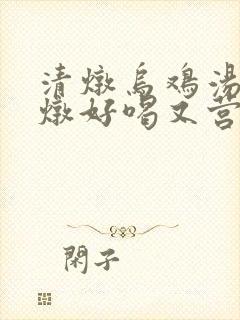 清燉烏鸡湯
燉好喝又营
閑子